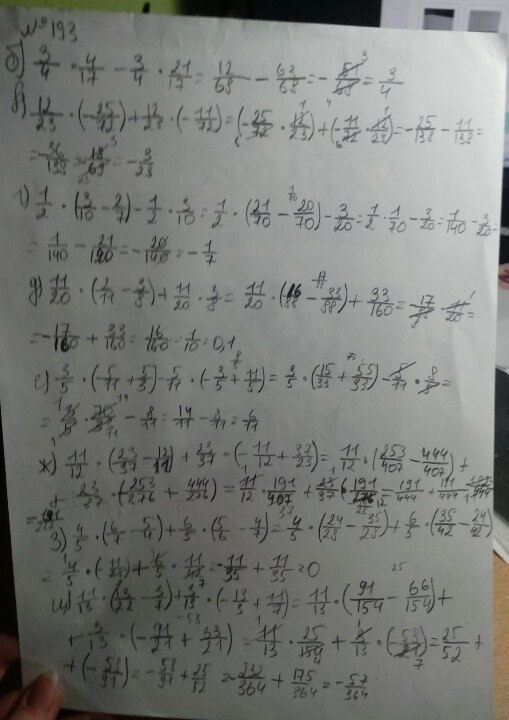 № 193
б) 3/4 · 4/17 − 3/4 · 21/17 = 12/68 − 63/68 = − 51/68 = 3/4
в) 12/23 · (−25/72) + 12/23 · (−11/72) = (−25/72 · 12/23) + (−11/72 · 12/23) = −25/138 − 11/138 =
= −36/138 = −18/69 = −3/23
г) 1/2 · (3/10 − 2/7) − 1/2 · 3/10 = 1/2 · (21/70 − 20/70) − 3/20 = 1/2 · 1/70 − 3/20 = 1/140 − 3/20 =
= 1/140 − 21/140 = − 20/140 = − 1/7
д) 11/20 · (2/11 − 3/8) + 11/20 · 3/8 = 11/20 · (16/88 − 33/88) + 33/160 = −17/88 · 11/20 =
= −17/160 + 33/160 = 16/160 = 1/10 = 0,1
е) 3/5 · (5/11 + 5/3) − 5/11 · (−3/5 + 11/5) = 3/5 · (15/33 + 55/33) − 5/11 · 8/5 =
= 3/5 · 70/33 − 8/11 = 14/11 − 8/11 = 6/11
ж) 11/12 · (23/37 − 12/11) + 23/37 · (−11/12 + 37/23) = 11/12 · (253/407 − 444/407) +
з) 4/5 · (6/7 − 5/4) + 6/5 · (5/6 − 4/7) = 4/5 · (24/28 − 35/28) + 6/5 · (35/42 − 24/42)
= 4/5 · (−11/28) + 6/5 · 11/42 = −11/35 + 11/35 = 0
и) 11/13 · (13/22 − 3/7) + 3/13 · (−13/3 + 11/7) = 11/13 · (91/154 − 66/154) +
+ 3/13 · (−91/21 + 33/21) = 11/13 · 25/154 + 3/13 · (58/21) = 25/52 +
+ (−58/91) = −58/91 + 25/52 = −232/364 + 175/364 = −57/364